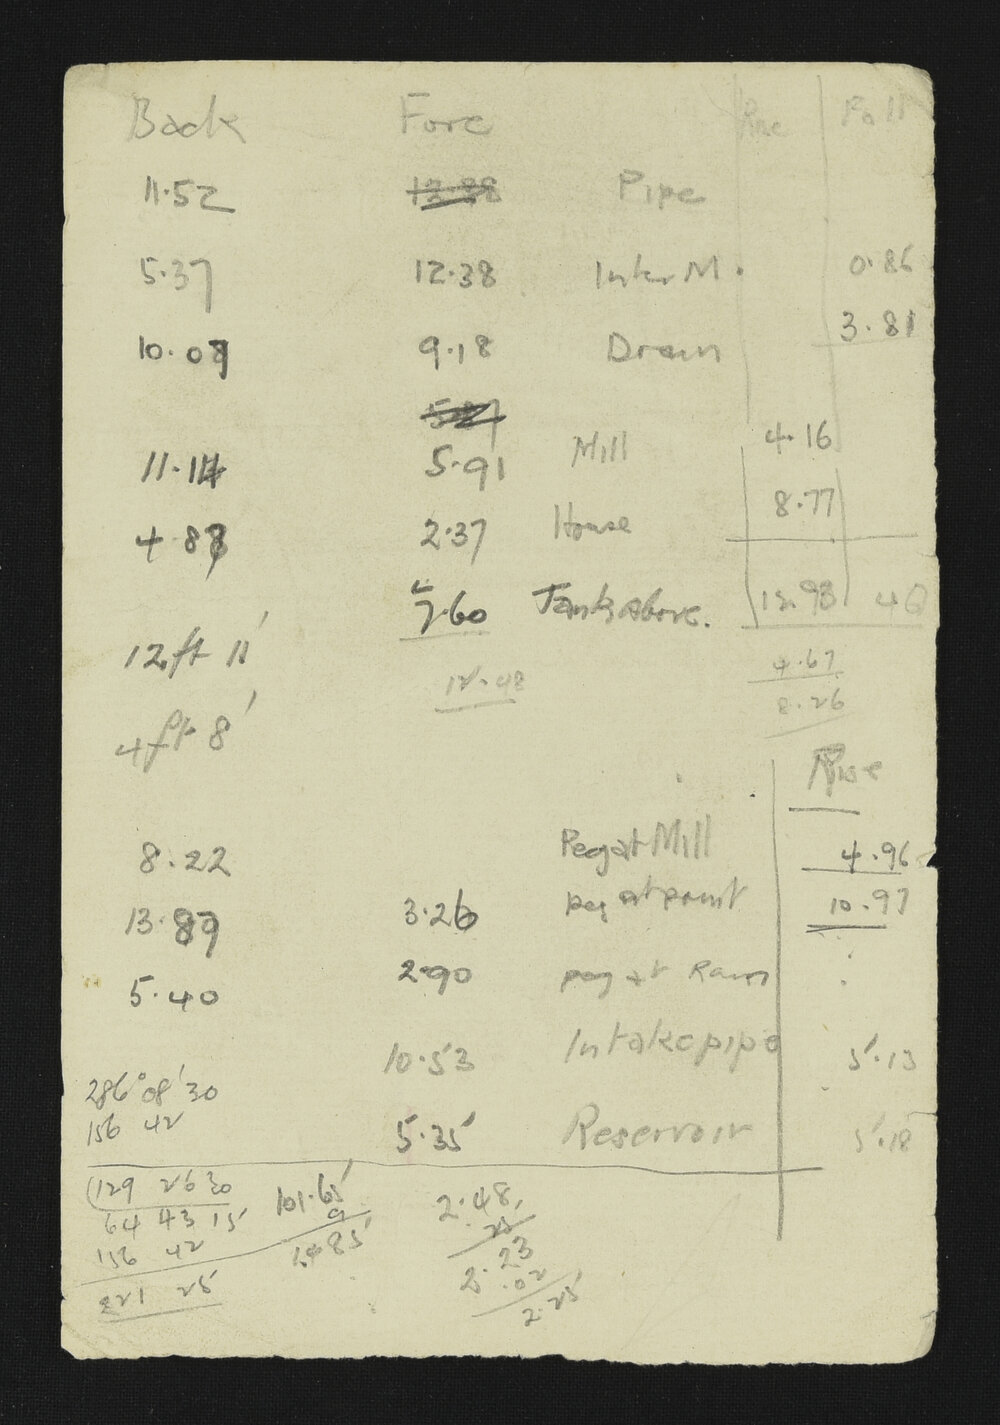 Back Fore Rise Fall
11.52 Pipe
5.37 12.38 Inter M. 0.86
3.81
10.09 9.18 Drain
Mill 4.16
11.14 5.91
8.77
4.88 2.37 House
7.60 Tank above. 12.93
12 ft 11'
12.48 4.67
8.26
4 ft 8'
Rise
8.22 Peg at Mill 4.96
13.89 3.26 peg at point 10.97
5.40 2.90 peg at Ram
10.53 Intake pipe 5.13
286° 08' 30
156 42 5.35 Reservoir 5.18
129 26 30 101.65 2.48
64 43 15 9 25
156 42 85 2.23
221 25 .02
2.25